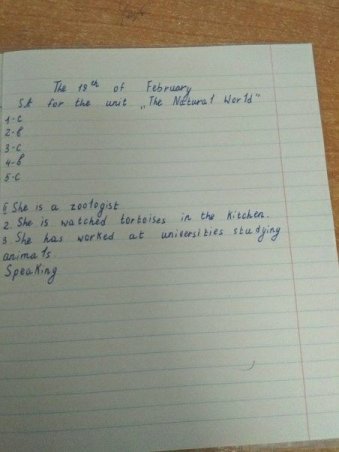 The 18th of February
SA for the unit „The Natural World"
1-c
2-b
3-c
4-b
5-c
She is a zoologist
2. She is watched tortoises in the kitchen.
3 She has worked at universities studying
animals.
Speaking